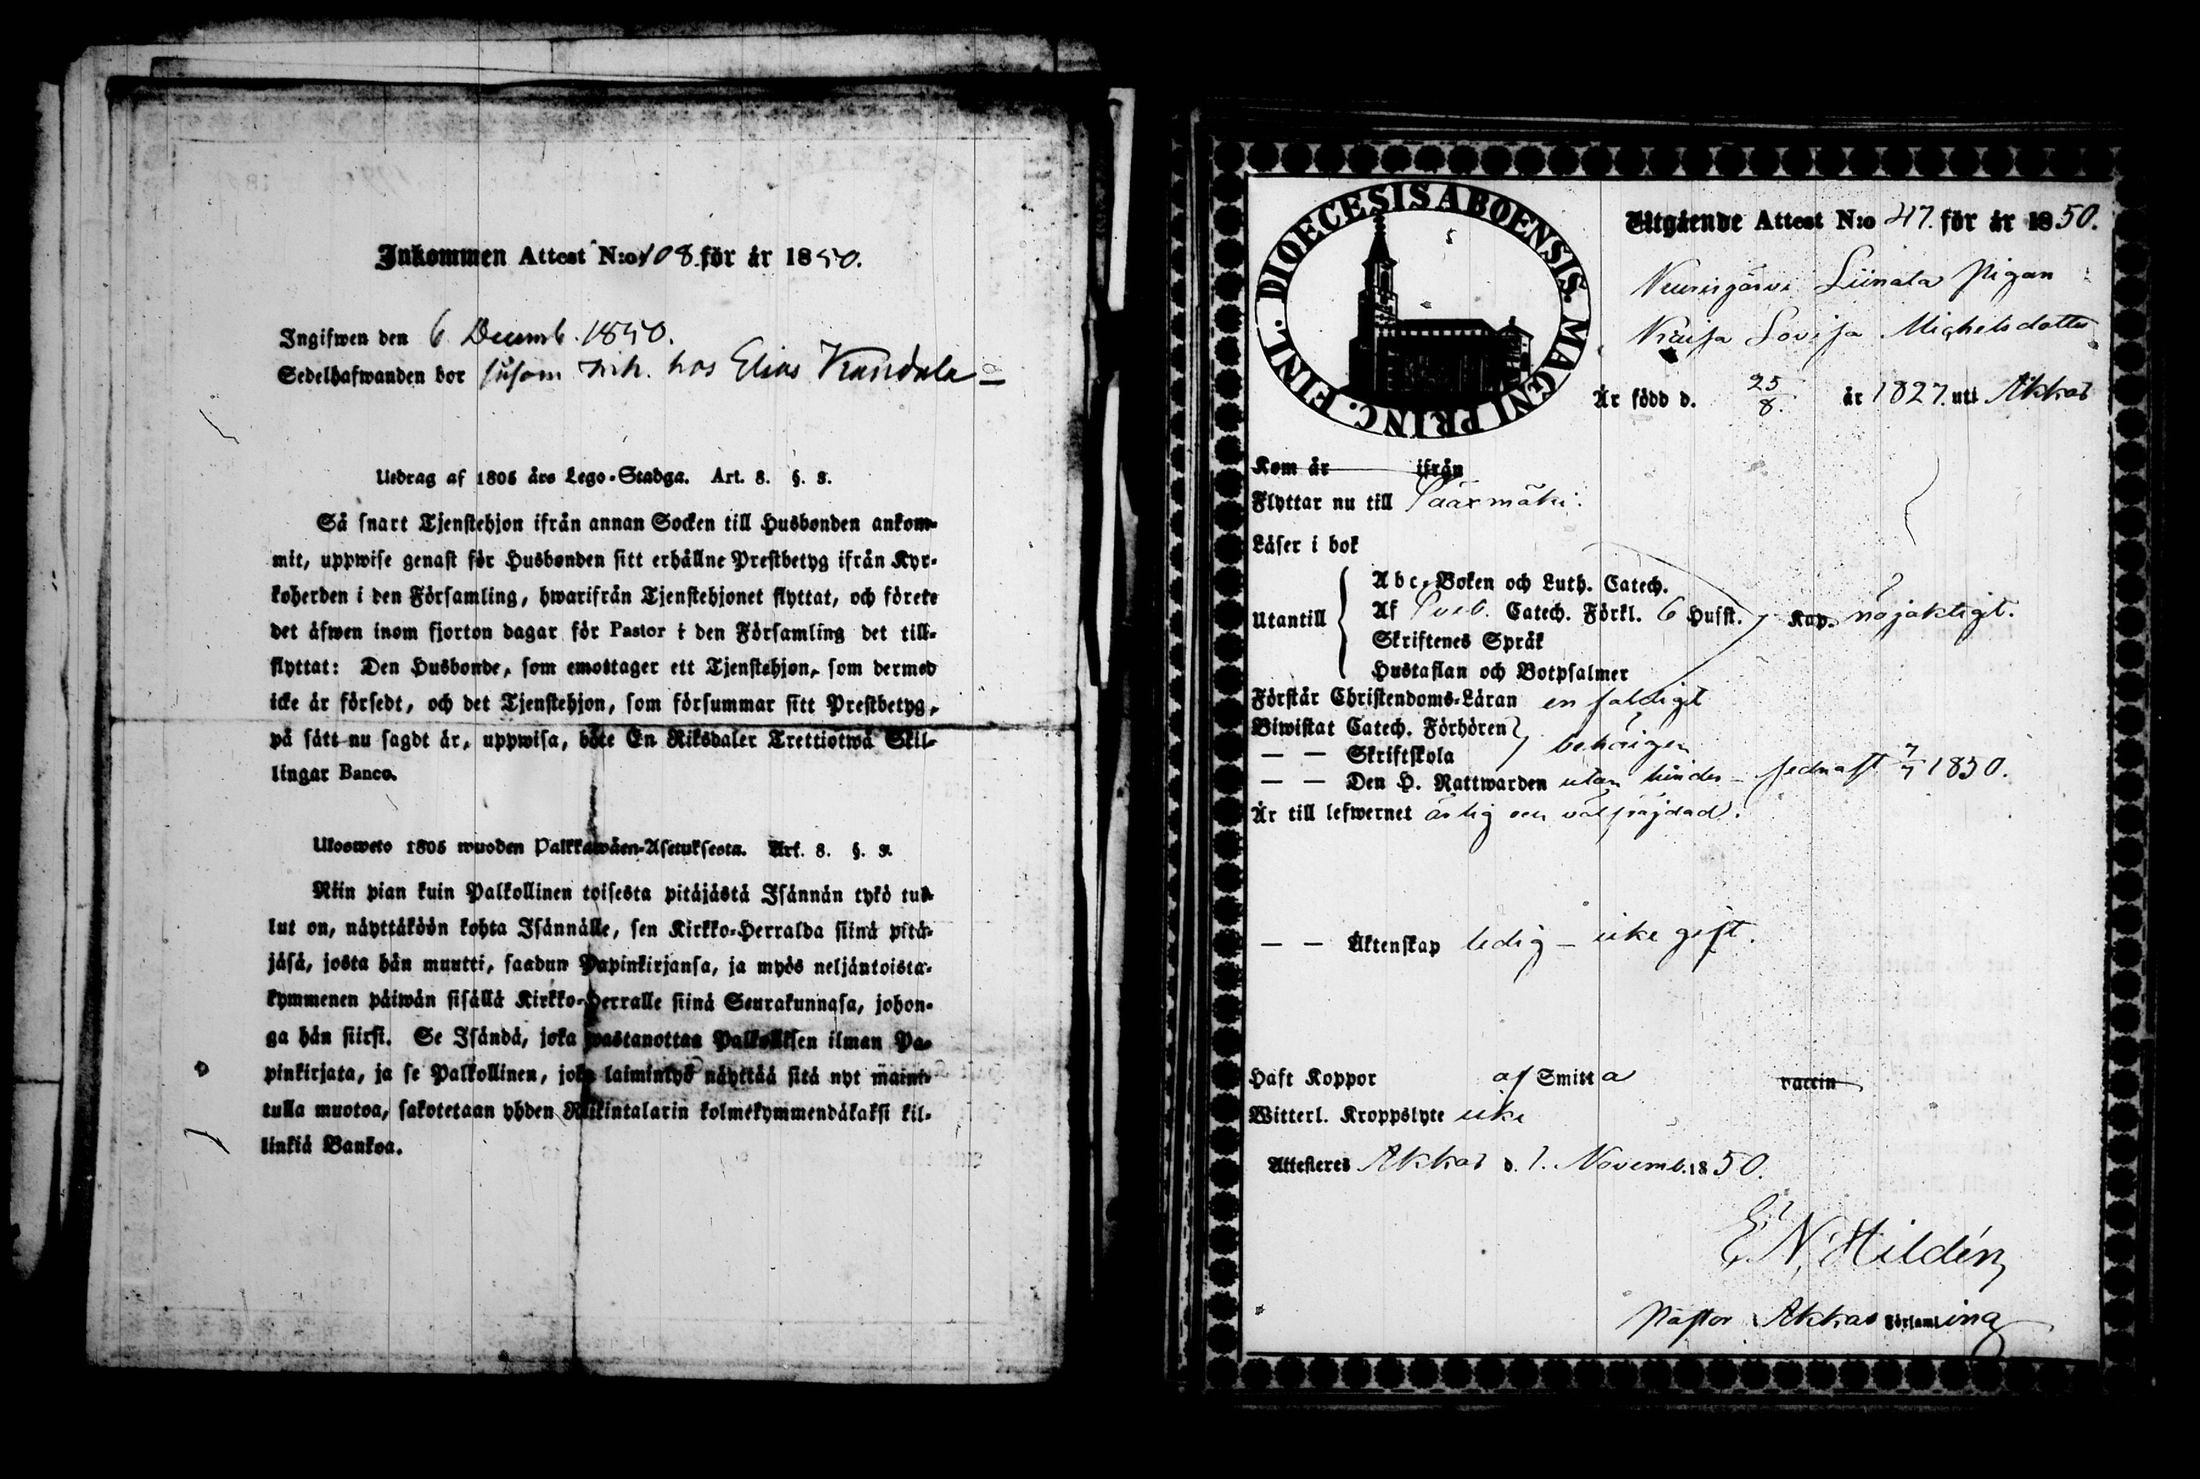 Inkommen Attest N:o 108. för år 1850.
Ingifwen den 6 Decemb. 1850.
Sedelhafwanden bor såsom inh. hos Elias Kandala
Utdrag af 1805 års Lego-Stadga. Art. 8. §. 3.
Så snart Tjenstehjon ifrån annan Socken till Husbonden ankom-
mit, uppwise genast för Husbonden sitt erhållne Prestbetyg ifrån Kyr-
koherden i den Församling, hwarifrån Tjenstehjonet flyttat, och förete
det äfwen inom fjorton dagar för Pastor i den Församling det till-
flyttat: Den Husbonde, som emottager ett Tjenstehjon, som dermed
icke är försedt, och det Tjenstehjon, som försummar sitt Prestbetyg,
på sätt nu sagdt är, uppwisa, böte En Riksdaler Trettiotwå Skil-
lingar Banco.
Ulosweto 1805 wuoden Palkkawäen-Asetuksesta. Art. 8. §. 3.
Niin pian kuin Palkollinen toisesta pitäjästä Isännän tykö tul-
lut on, näyttäköön kohta Isännälle, sen Kirkko-Herralda siinä pitä-
jäsä, josta hän muutti, saadun Papinkirjansa, ja myös neljäntoista-
kymmenen päiwän sisällä Kirkko-Herralle siinä Seurakunnasa, johon-
ga hän siirsi. Se Isändä, joka wastanottaa Palkollisen ilman Pa-
pinkirjata, ja se Palkollinen, joka laiminlyö näyttää sitä nyt mainit-
tulla muotoa, sakotetaan yhden Riikintalarin kolmekymmendäkaksi kil-
linkiä Bankoa.
DIOECESIS ABOENSIS. MAGNI PRINC. FINL.
Utgående Attest N:o 47. för år 1850.
Liinala Pigan
Kaisa Lovisa Michelsdotter
Är född d. 25/8. år 1827. uti Akkas
Kom år ifrån
Flyttar nu till Sääxmäki.
Läser i bok
Utantill
Abc-Boken och Luth. Catech.
Af Sveb. Catech. Förkl. 6 Hufst. Kap. nöjaktigt.
Skriftenes Språk
Hustaflan och Botpsalmer
Förstår Christendoms-Läran enfaldigt
Biwistat Catech. Förhören
— — Skriftskola behörigen
— — Den H. Nattwarden utan hinder – sednast 7/7 1850.
Är till lefwernet ärlig och välfrägdad.
— — Äktenskap ledig – icke gift.
Haft Koppor af Smitta vaccin
Witterl. Kroppslyte icke
Attesteres Akkas d. 1. Novemb. 1850.
E. N. Hildén
Pastor i Akkas Församling